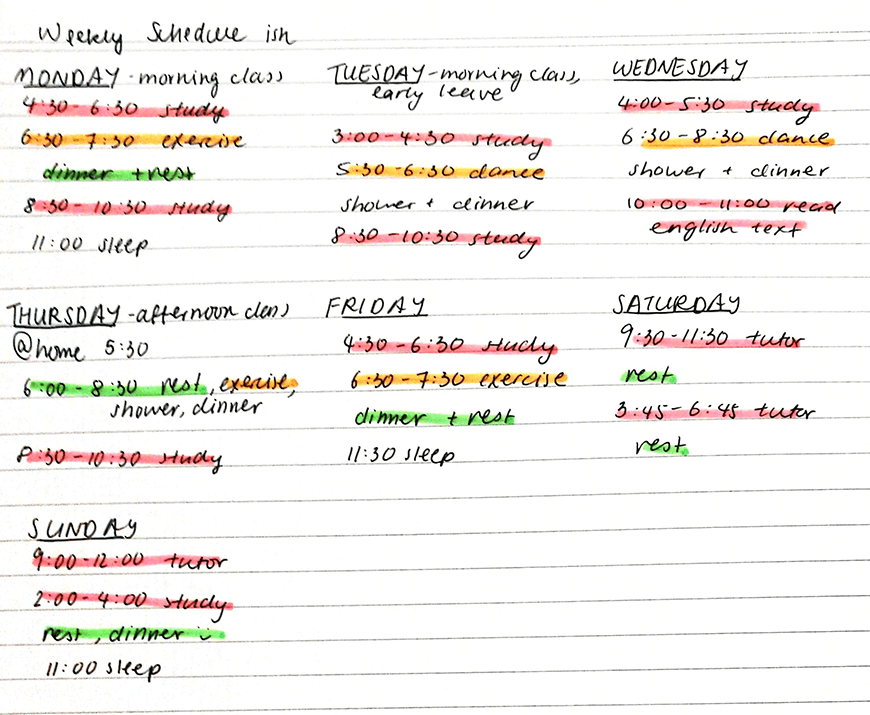 Weekly Schedule ish
MONDAY - morning class
4:30 - 6:30 study
6:30 - 7:30 exercise
dinner + rest
8:30 - 10:30 study
11:00 sleep
TUESDAY - morning class,
early leave
3:00 - 4:30 study
5:30 - 6:30 dance
shower + dinner
8:30 - 10:30 study
WEDNESDAY
4:00 - 5:30 study
6:30 - 8:30 dance
shower + dinner
10:00 - 11:00 read
english text
THURSDAY - afternoon class
@home 5:30
6:00 - 8:30 rest, exercise,
shower, dinner
8:30 - 10:30 study
FRIDAY
4:30 - 6:30 study
6:30 - 7:30 exercise
dinner + rest
11:30 sleep
SATURDAY
9:30 - 11:30 tutor
rest
3:45 - 6:45 tutor
rest
SUNDAY
9:00 - 12:00 tutor
2:00 - 4:00 study
rest, dinner :)
11:00 sleep